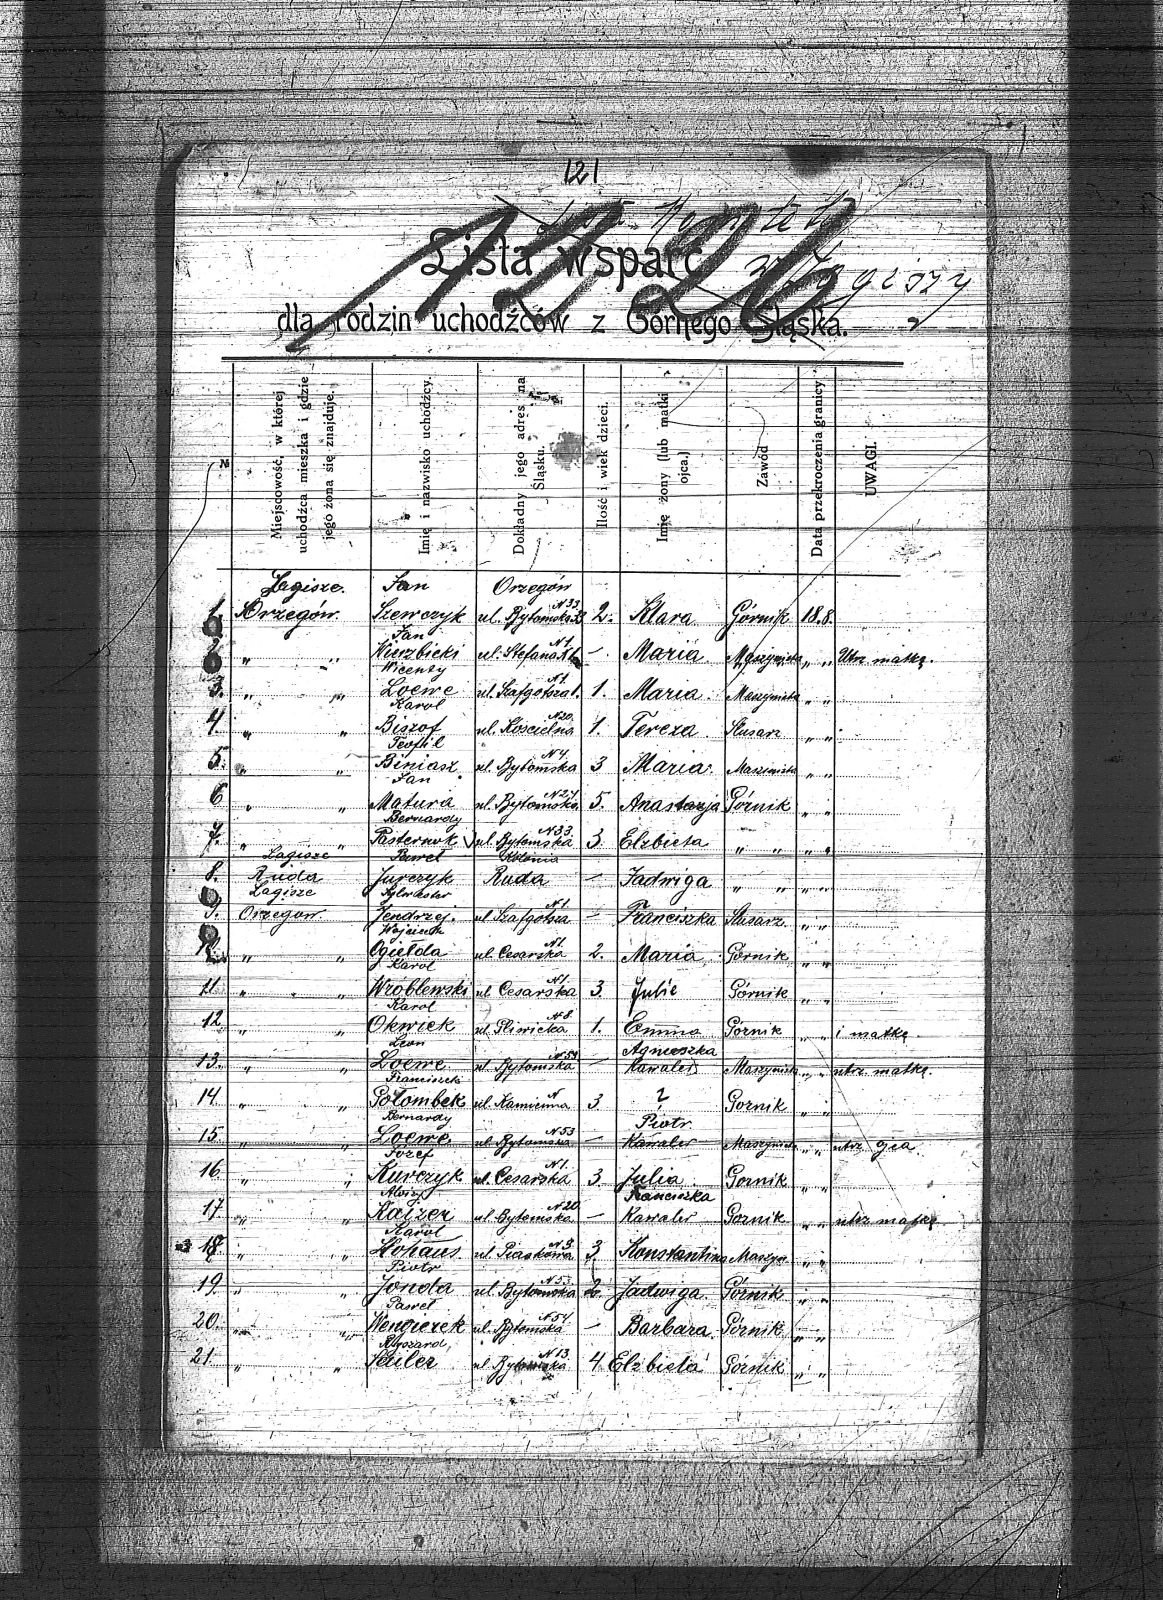 121
Lista wsparć
w Łagiszy
dla rodzin uchodźców z Górnego Śląska.
№
Miejscowość, w której uchodźca mieszka i gdzie jego żona się znajduje.
Imię i nazwisko uchodźcy.
Dokładny jego adres na Śląsku.
Ilość i wiek dzieci.
Imię żony (lub matki ojca.)
Zawód
Data przekroczenia granicy
UWAGI.
Łagisze. Jan Orzegów
1. Orzegów. Szewczyk ul. Bytomska 2. Klara Górnik 18.8.
Jan N 1
2. " " Wierzbicki ul. Stefana – Maria Maszynista " " Utrz matkę.
Wicenty N 1
3. " " Loewe ul. Szafgotsza 1. Maria Maszynista " "
Karol N 20
4. " " Biszof ul. Kościelna 1. Tereza Slusarz " "
Teofil N 4
5. " " Biniasz ul. Bytomska 3 Maria Maszinista " "
Jan N 27
6 " " Matura ul. Bytomska 5. Anastazja Górnik " "
Bernardy N 33
7. " " Pasternok ul. Bytomska 3. Elzbieta " " " "
Lagisze Paweł Kolonia
8. Ruda Jurczyk Ruda – Jadwiga " " " "
Lagisze Sylwester N 1
9. Orzegow Jendrzej. ul Szafgotsza – Franciszka Slusarz " "
Wojciech N 1
" " Ogiełda ul. Cesarska 2. Maria Górnik " "
Karol N 1
11 " " Wróblewski ul Cesarska 3. Julie Górnik " "
Karol N 8
12. " " Okwiek ul. Gliwicka 1. Emma Górnik " " i matkę
Leon Agnieszka
13. " " Loewe ul. Bytomska – Kawaler Maszynista " " utrz. matkę.
Franciszek N
14. " " Gołombek ul. Kamienna 3 ? Gornik " "
Bernardy N 53 Piotr
15. " " Loewe ul. Bytomska – Kawaler Maszynista " " utrz ojca.
Józef N 1.
16 " " Kurczyk ul. Cesarska 3. Julia Gornik " "
Alojzy N 20 Franciszka
17. " " Kajzer ul. Bytomska – Kawaler Gornik " " utrz matkę
Karol N 3
18 " " Hohaus ul. Piaskowa 3 Konstantina Maszyn " "
Piotr N 53
19. " " Jonda ul. Bytomska 2. Jadwiga Górnik " "
Paweł N 54
20. " " Wengierek ul. Bytomska – Barbara Górnik " "
Ryszard, N 13.
21. " " Seiler ul Bytomska 4 Elzbieta Górnik " "